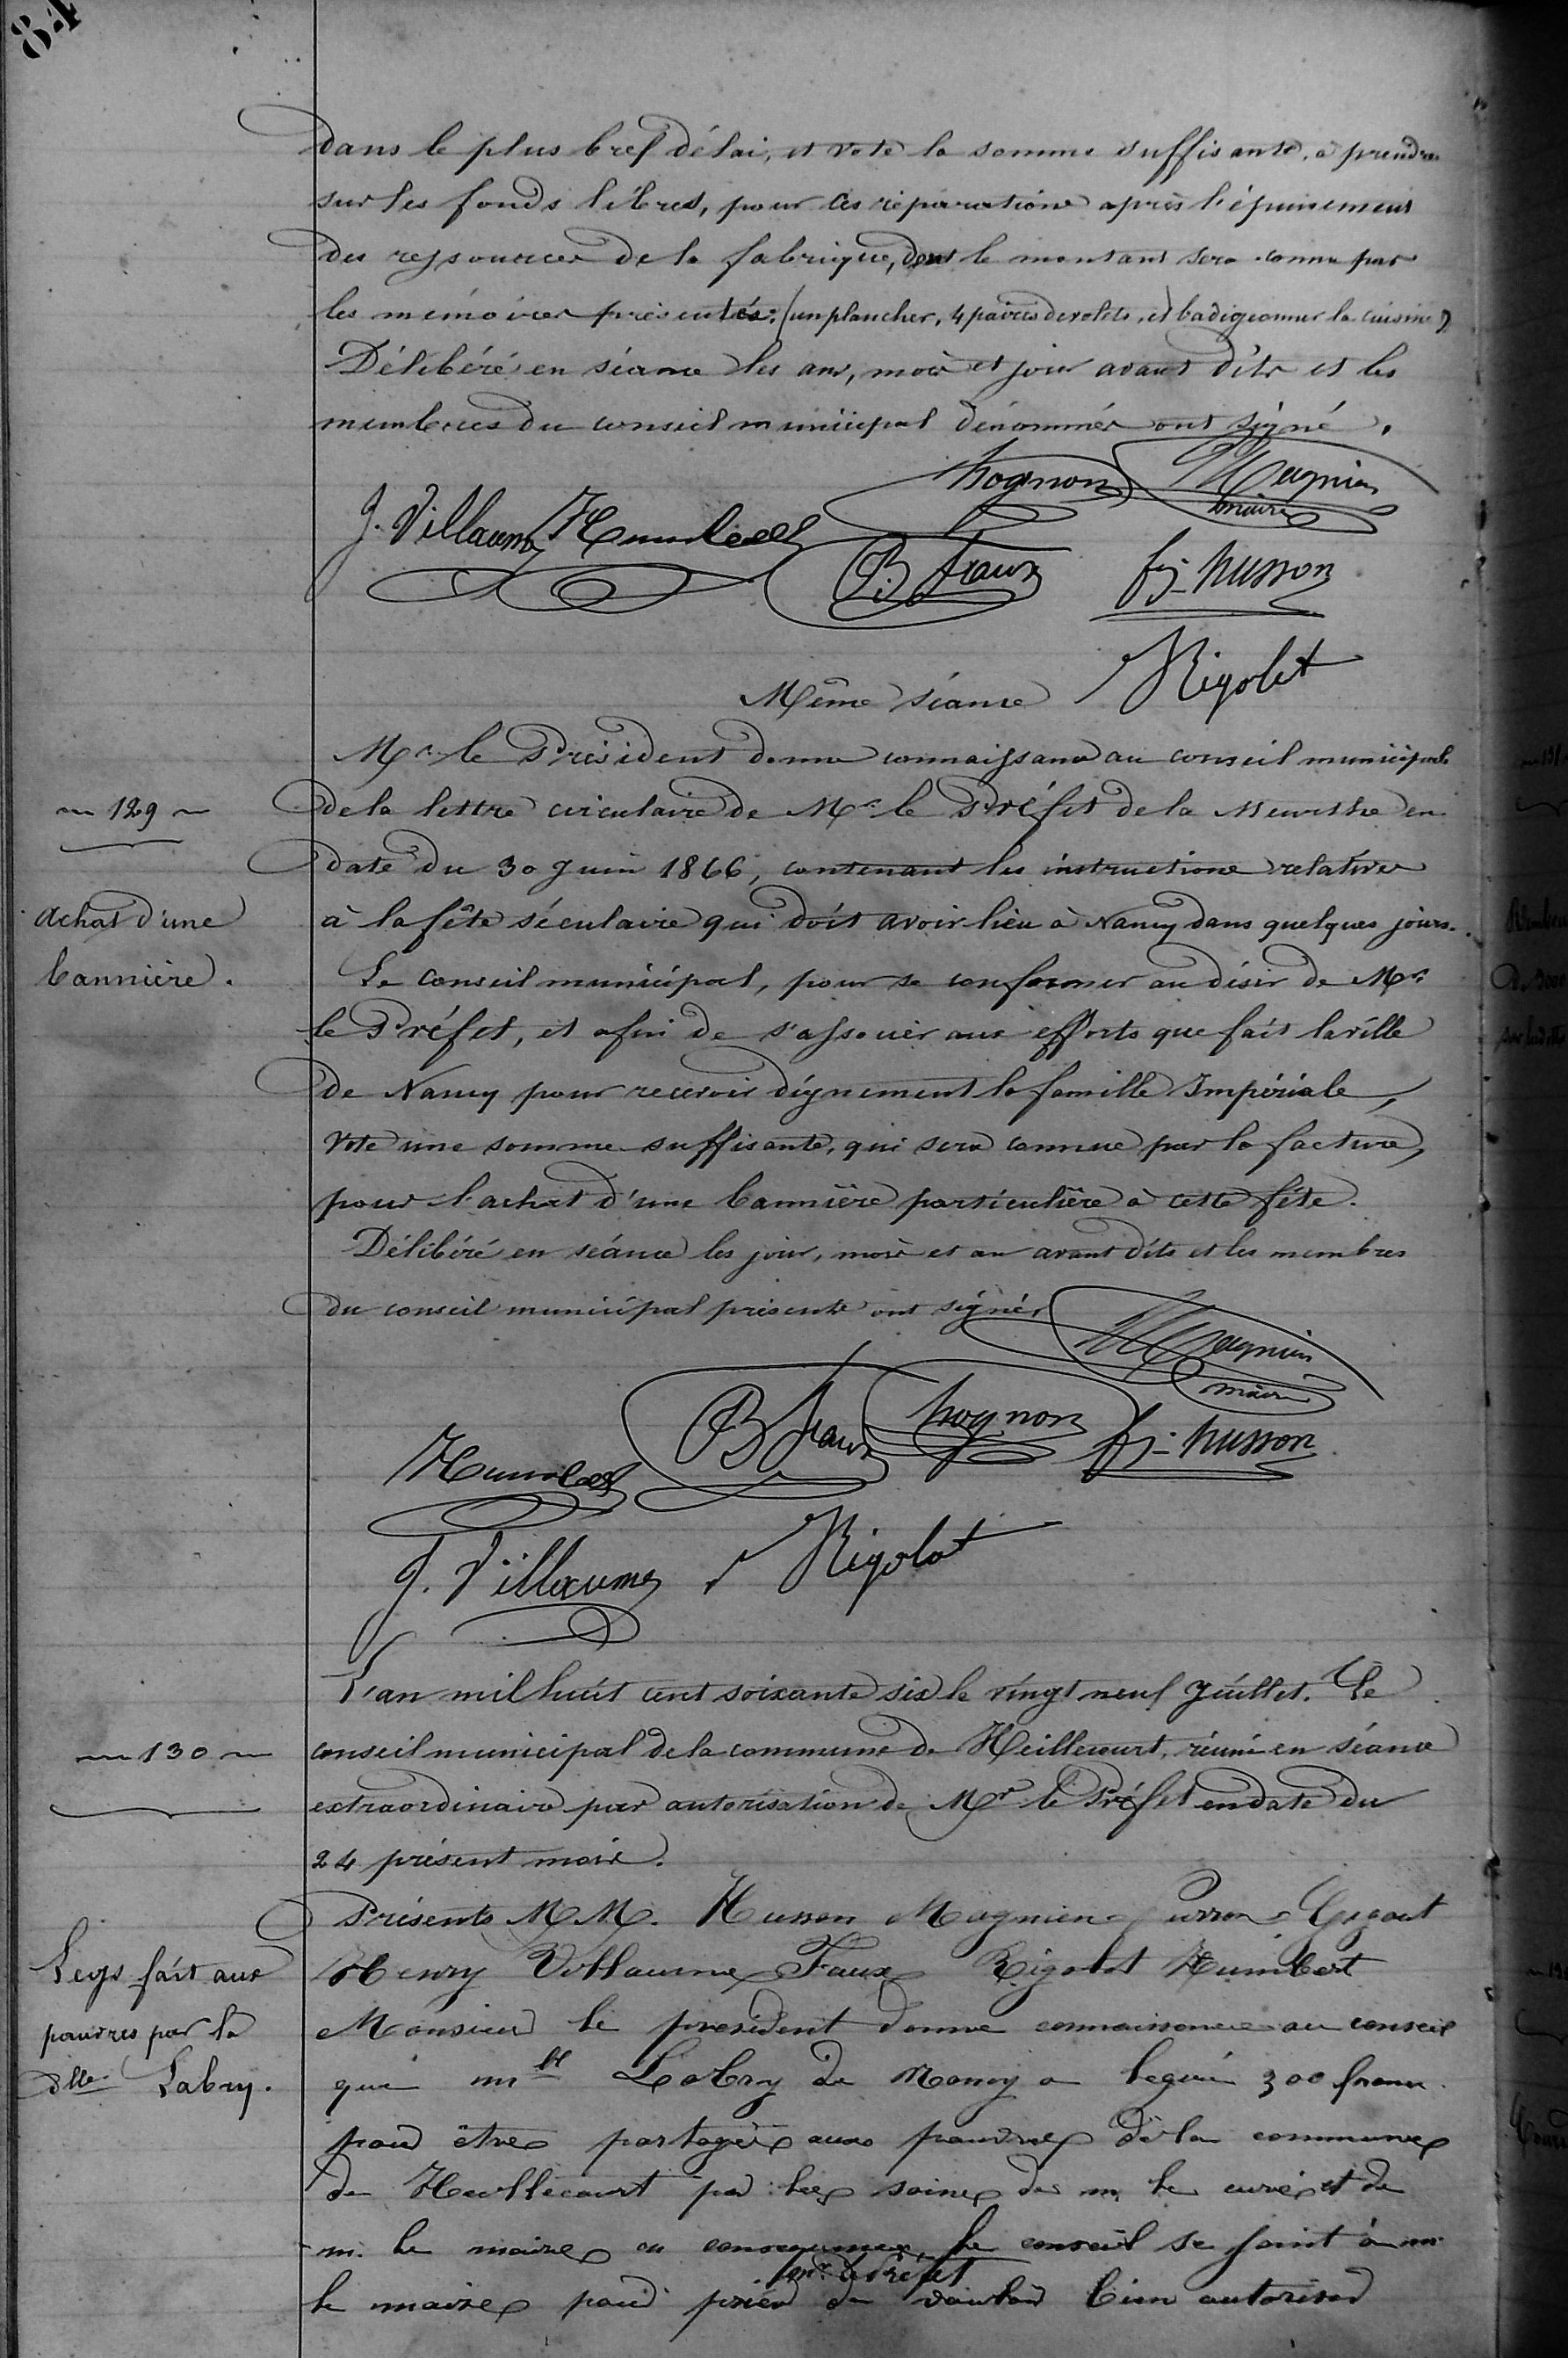 84
dans le plus bref délai, et vote la somme suffisante, à prendre
sur les fonds libres, pour ces réparations après l'épuisement
des ressources de la fabrique, dont le montant sera connu par
les mémoires présentés: (un plancher, 4 paires de volets, et badigeonner la cuisine)
Délibéré en séance les an, mois et jour avant dits et les
membres du conseil municipal dénommés ont signé.
hognon Magnien
maire
J. Villaume Humbert
B. Faux fs- husson
Rigolet
Même séance
Mr. le Président donne connaissance au conseil municipal
~ 129 ~
de la lettre circulaire de Mr. le Préfet de la Meurthe en
date du 30 Juin 1866, contenant les instructions relatives
achat d'une
bannière.
à la fête séculaire qui doit avoir lieu à Nancy dans quelques jours.
Le conseil municipal, pour se conformer au désir de Mr.
le Préfet, et afin de s'associer aux efforts que fait la ville
de Nancy pour recevoir dignement la famille Impériale,
vote une somme suffisante, qui sera connue par la facture,
pour l'achat d'une bannière particulière à cette fête.
Délibéré en séance les jour, mois et an avant dits et les membres
du conseil municipal présents ont signés
Magnien
maire
Humbert B Faux hognon fs- husson
J. Villaume Rigolet
L'an mil huit cent soixante six le vingt neuf Juillet. Le
~ 130 ~
conseil municipal de la commune de Heillecourt, réuni en séance
extraordinaire par autorisation de Mr le Préfet en date du
24 présent mois.
Présents M M. Husson Magnien Gigout
Legs fait aux
pauvres par la
dlle. Labry.
Henry Villaume Faux Rigolet Humbert
Monsieur le president donne connaissance au conseil
que mlle Labry de Nancy a legué 300 franc
pour être partagés aux pauvres de la commune
de Heillecourt par les soins de m. le curé et de
m. le maire en consequence, le conseil se joint à mr
le maire pour prier mr. le Préfet de vouloir bien autoriser